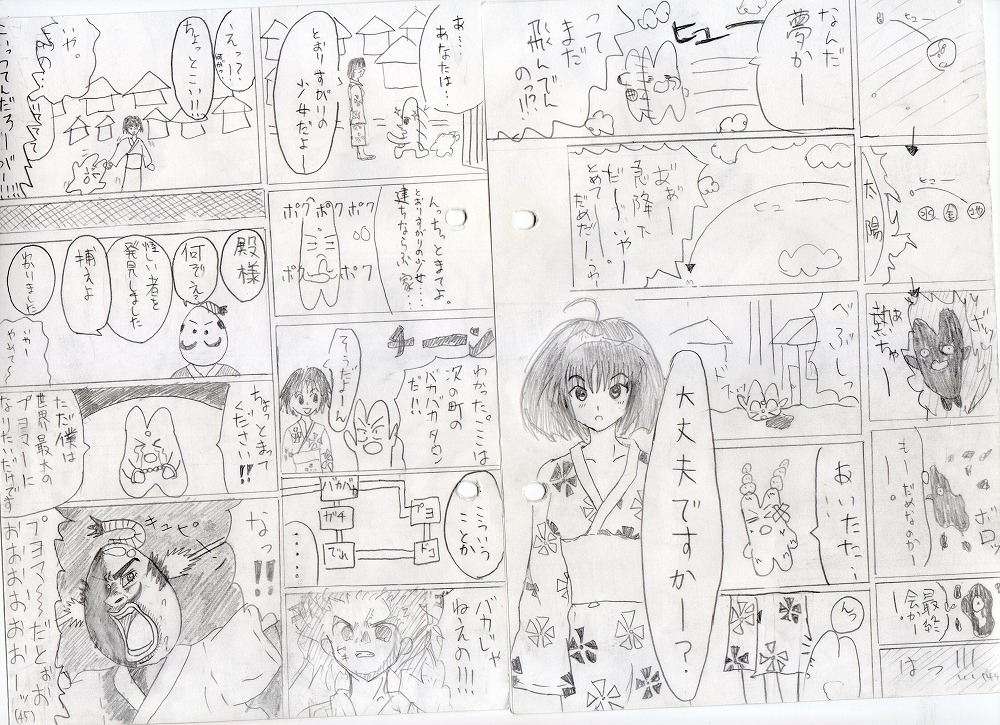 ヒュー
ヒュー
水
金
地
太陽
ボッ
熱ちゃー
ボロッ
もーだめなのかー。
最終
会かー。
はっ!!!
(44
なんだ
夢かー
ヒュー
って
まだ
飛んでん
の!?!
ヒュー
おぁー
急降下
だーいやー。
とめてー
だめだー
べふしっ
大丈夫ですかー?
おいたた…
んっ
あ…
あなたは…
とおりすがりの
少女だよー
えっ!?
ちょっとこい!!
いや。
んっちょっとまてよ。
とおりすがりの少女…
建ちならぶ家…
ポク ポク ポク
ポク ポク
チーーン
わかった。ここは
次の町の
バカバカタウン
だ!!
そうだよーん
こういう
ことか
バカバカ
ガチ
でれ
プヨ
ドコ
……
バカじゃ
ねぇの!!!
殿様
何でぇ?
怪しい者を
発見しました
捕えよ
わかりました
いやー
やめて~
ちょっとまって
ください!!
ただ僕は
世界最大の
プヨマーに
なりたいだけです
なっ!!
キュピーン
プヨマ~~だとぉお
おおおおおおおーッ
(45)